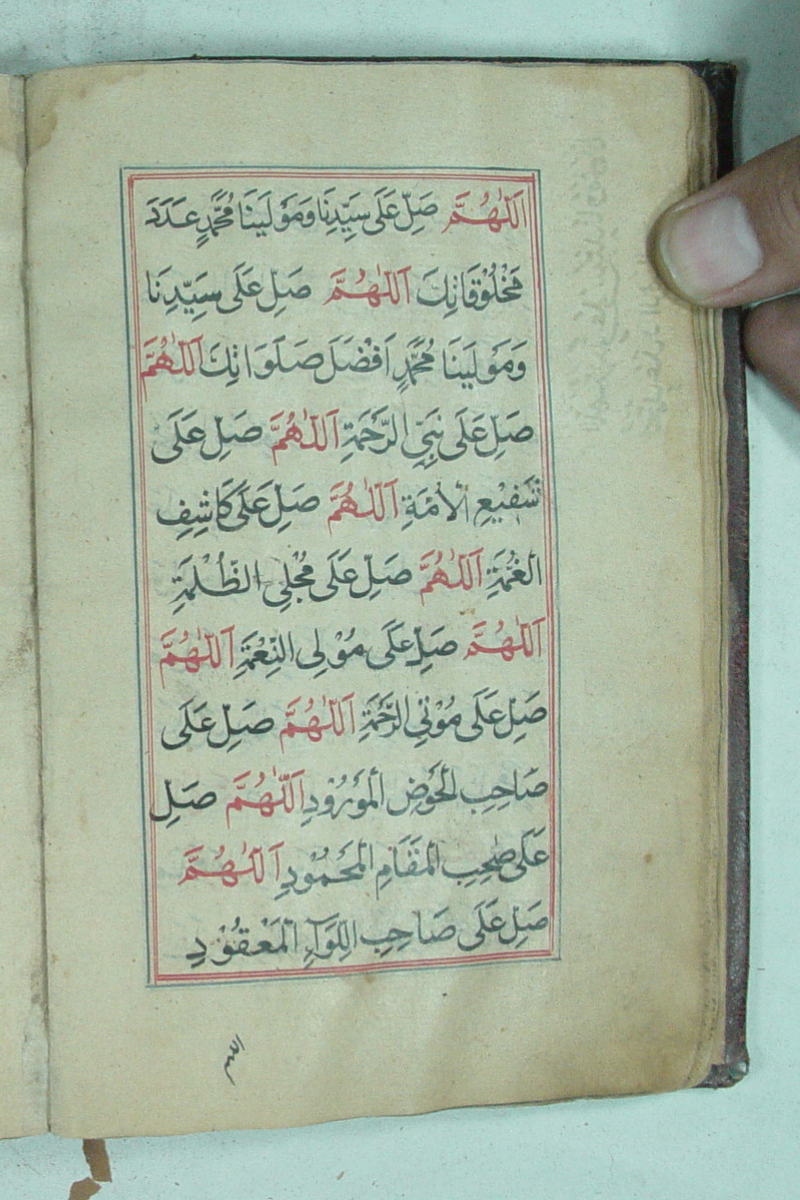 اَللّٰهُمَّ صَلِّ عَلَى سَيِّدِنَا وَمَوْلَيٰنَا مُحَمَّدٍ عَدَدَ
مَخْلُوْقَاتِكَ اَللّٰهُمَّ صَلِّ عَلَى سَيِّدِنَا
وَمَوْلَيٰنَا مُحَمَّدٍ اَفْضَلَ صَلَوَاتِكَ اَللّٰهُمَّ
صَلِّ عَلَى نَبِيِّ الرَّحْمَةِ اَللّٰهُمَّ صَلِّ عَلَى
شَفِيْعِ الْاُمَّةِ اَللّٰهُمَّ صَلِّ عَلَى كَاشِفِ
الْغُمَّةِ اَللّٰهُمَّ صَلِّ عَلَى مُجْلِي الظُّلْمَةِ
اَللّٰهُمَّ صَلِّ عَلَى مُوْلِى النِّعْمَةِ اَللّٰهُمَّ
صَلِّ عَلَى مُوْتِي الرَّحْمَةِ اَللّٰهُمَّ صَلِّ عَلَى
صَاحِبِ الْحَوْضِ الْمَوْرُوْدِ اَللّٰهُمَّ صَلِّ
عَلَى صٰحِبِ الْمَقَامِ الْمَحْمُوْدِ اَللّٰهُمَّ
صَلِّ عَلَى صَاحِبِ اللِّوَآءِ الْمَعْقُوْدِ
اللهم